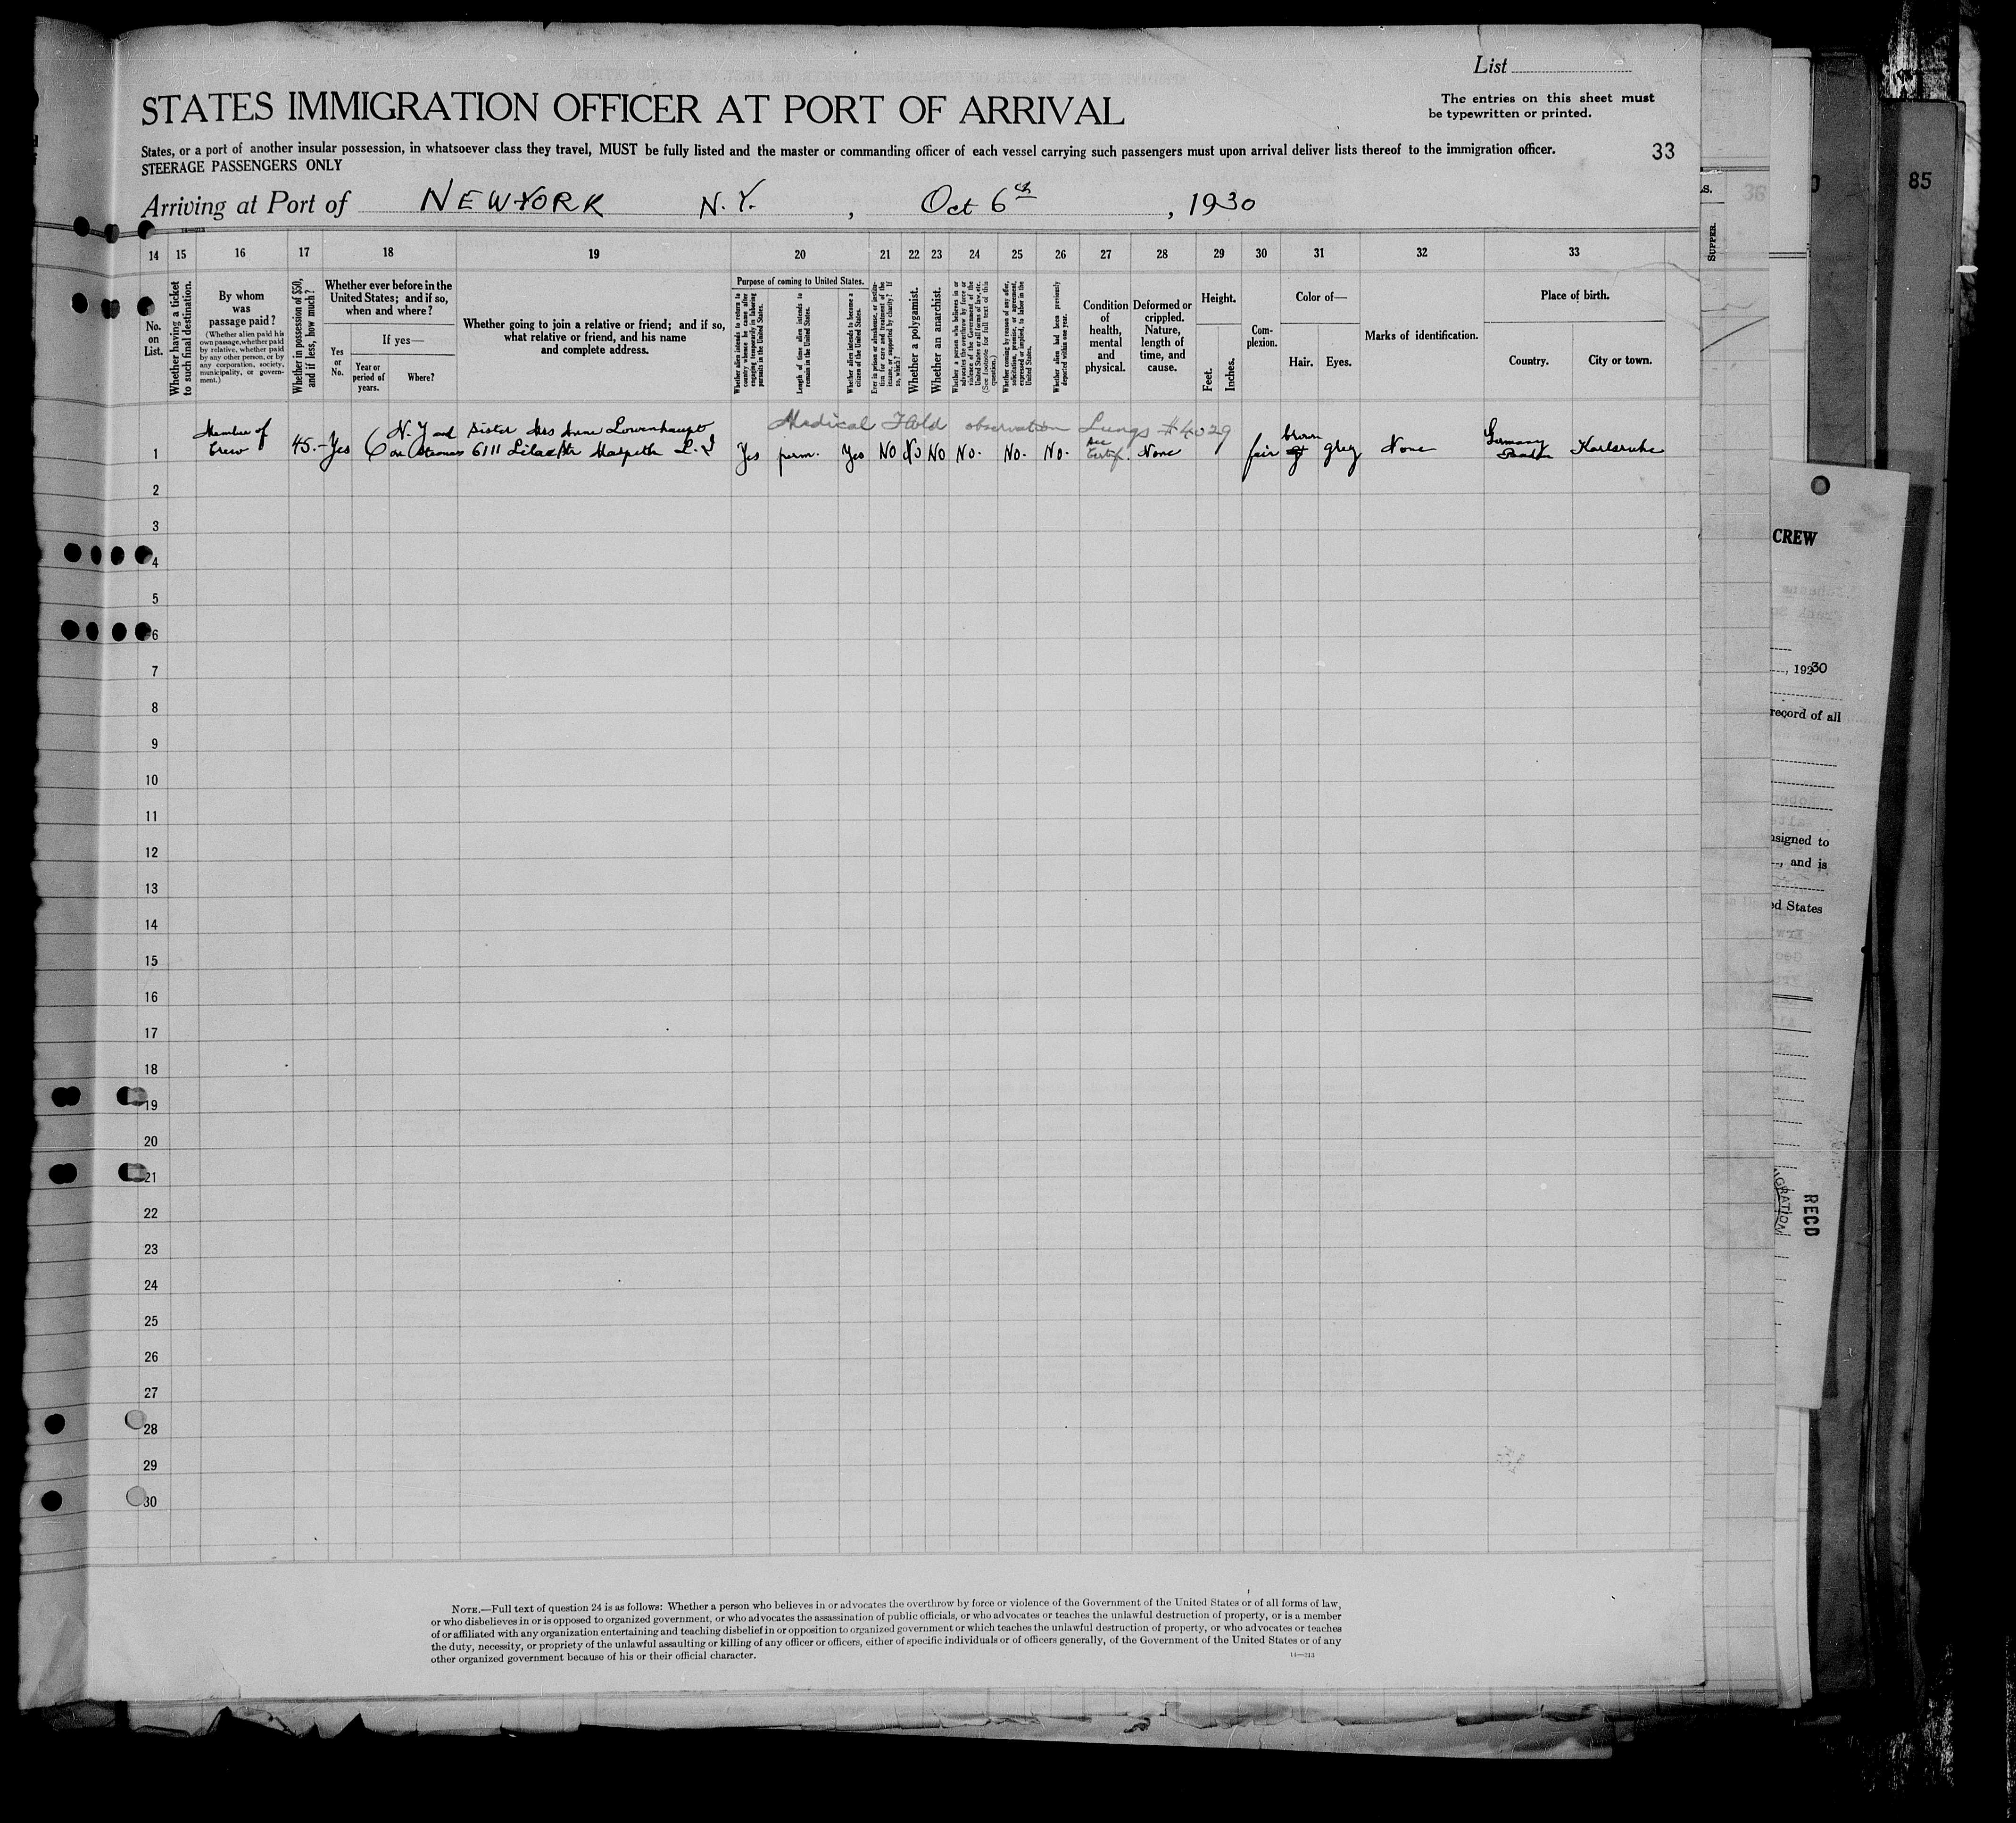 List
STATES IMMIGRATION OFFICER AT PORT OF ARRIVAL
The entries on this sheet must
be typewritten or printed.
States, or a port of another insular possession, in whatsoever class they travel, MUST be fully listed and the master or commanding officer of each vessel carrying such passengers must upon arrival deliver lists thereof to the immigration officer.
STEERAGE PASSENGERS ONLY
33
Arriving at Port of NEW YORK N.Y. , Oct 6th , 1930
14—213
14 15 16 17 18 19 20 21 22 23 24 25 26 27 28 29 30 31 32 33
No.
on
List.
Whether having a ticket
to such final destination.
By whom
was
passage paid?
(Whether alien paid his
own passage, whether paid
by relative, whether paid
by any other person, or by
any corporation, society,
municipality, or govern-
ment.)
Whether in possession of $50,
and if less, how much?
Whether ever before in the
United States; and if so,
when and where?
Yes
or
No.
If yes—
Year or
period of
years.
Where?
Whether going to join a relative or friend; and if so,
what relative or friend, and his name
and complete address.
Purpose of coming to United States.
Whether alien intends to return to
country whence he came after
engaging temporarily in laboring
pursuits in the United States.
Length of time alien intends to
remain in the United States.
Whether alien intends to become a
citizen of the United States.
Ever in prison or almshouse, or institu-
tion for care and treatment of the
insane, or supported by charity? If
so, which?
Whether a polygamist.
Whether an anarchist.
Whether a person who believes in or
advocates the overthrow by force or
violence of the Government of the
United States or all forms of law, etc.
(See footnote for full text of this
question.)
Whether coming by reason of any offer,
solicitation, promise, or agreement,
expressed or implied, to labor in the
United States.
Whether alien had been previously
deported within one year.
Condition
of
health,
mental
and
physical.
Deformed or
crippled.
Nature,
length of
time, and
cause.
Height.
Feet.
Inches.
Com-
plexion.
Color of—
Hair. Eyes.
Marks of identification.
Place of birth.
Country. City or town.
Medical Hold observation Lungs #4029
1 Member of
Crew 45.- Yes 6 N.Y and
on Sister Mrs Anne Lowenhaupt
6111 Lilac Str Maspeth L.I Yes perm. Yes NO NO NO NO. NO. NO. see
Certif. None fair brown grey None Germany
Karlsruhe
2
3
4
5
6
7
8
9
10
11
12
13
14
15
16
17
18
19
20
21
22
23
24
25
26
27
28
29
30
NOTE.—Full text of question 24 is as follows: Whether a person who believes in or advocates the overthrow by force or violence of the Government of the United States or of all forms of law,
or who disbelieves in or is opposed to organized government, or who advocates the assassination of public officials, or who advocates or teaches the unlawful destruction of property, or is a member
of or affiliated with any organization entertaining and teaching disbelief in or opposition to organized government or which teaches the unlawful destruction of property, or who advocates or teaches
the duty, necessity, or propriety of the unlawful assaulting or killing of any officer or officers, either of specific individuals or of officers generally, of the Government of the United States or of any
other organized government because of his or their official character.
14—213
SUPPER.
36
85
CREW
, 1930
record of all
nsigned to
, and is
ed States
GRATION
RECD